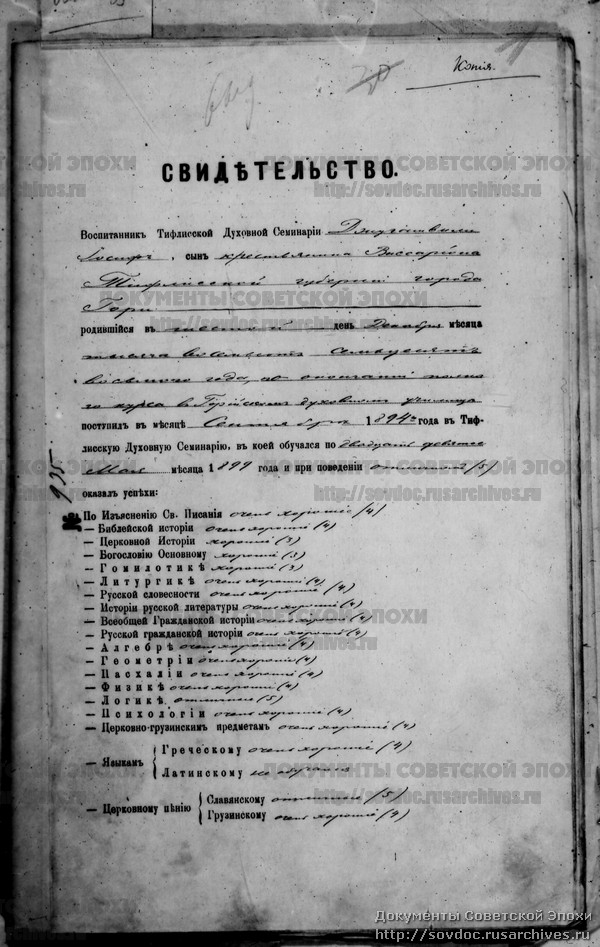 Копія.
СВИДѢТЕЛЬСТВО.
Воспитанник Тифлисской Духовной Семинаріи Джугашвили
Іосифъ, сынъ крестьянина Виссаріона
Тифлисской губерніи города
Гори
родившійся въ шестой день Декабря мѣсяца
тысяча восемьсотъ семьдесятъ
восьмого года, по окончаніи полна
го курса въ Горійскомъ духовномъ училищѣ
поступил въ мѣсяцѣ Сентябрѣ 1894 года въ Тиф-
лисскую Духовную Семинарію, въ коей обучался по двадцать девятое
Мая мѣсяца 1899 года и при поведеніи отличномъ (5)
оказал успѣхи:
935
По Изъясненію Св. Писанія очень хорошіе (4)
— Библейской исторіи очень хорошіе (4)
— Церковной Исторіи хорошіе (3)
— Богословію Основному хорошіе (3)
— Гомилотикѣ хорошіе (3)
— Литургикѣ очень хорошіе (4)
— Русской словесности очень хорошіе (4)
— Исторіи русской литературы очень хорошіе (4)
— Всеобщей Гражданской исторіи очень хорошіе (4)
— Русской гражданской исторіи очень хорошіе (4)
— Алгебрѣ очень хорошіе (4)
— Геометріи очень хорошіе (4)
— Пасхаліи очень хорошіе (4)
— Физикѣ очень хорошіе (4)
— Логикѣ отличные (5)
— Психологіи очень хорошіе (4)
— Церковно-грузинскимъ предметамъ очень хорошіе (4)
— Языкамъ
Греческому очень хорошіе (4)
Латинскому не обучался
— Церковному пѣнію
Славянскому отличные (5)
Грузинскому очень хорошіе (4)
ДОКУМЕНТЫ СОВЕТСКОЙ ЭПОХИ
http://sovdoc.rusarchives.ru
Документы Советской Эпохи
http://sovdoc.rusarchives.ru